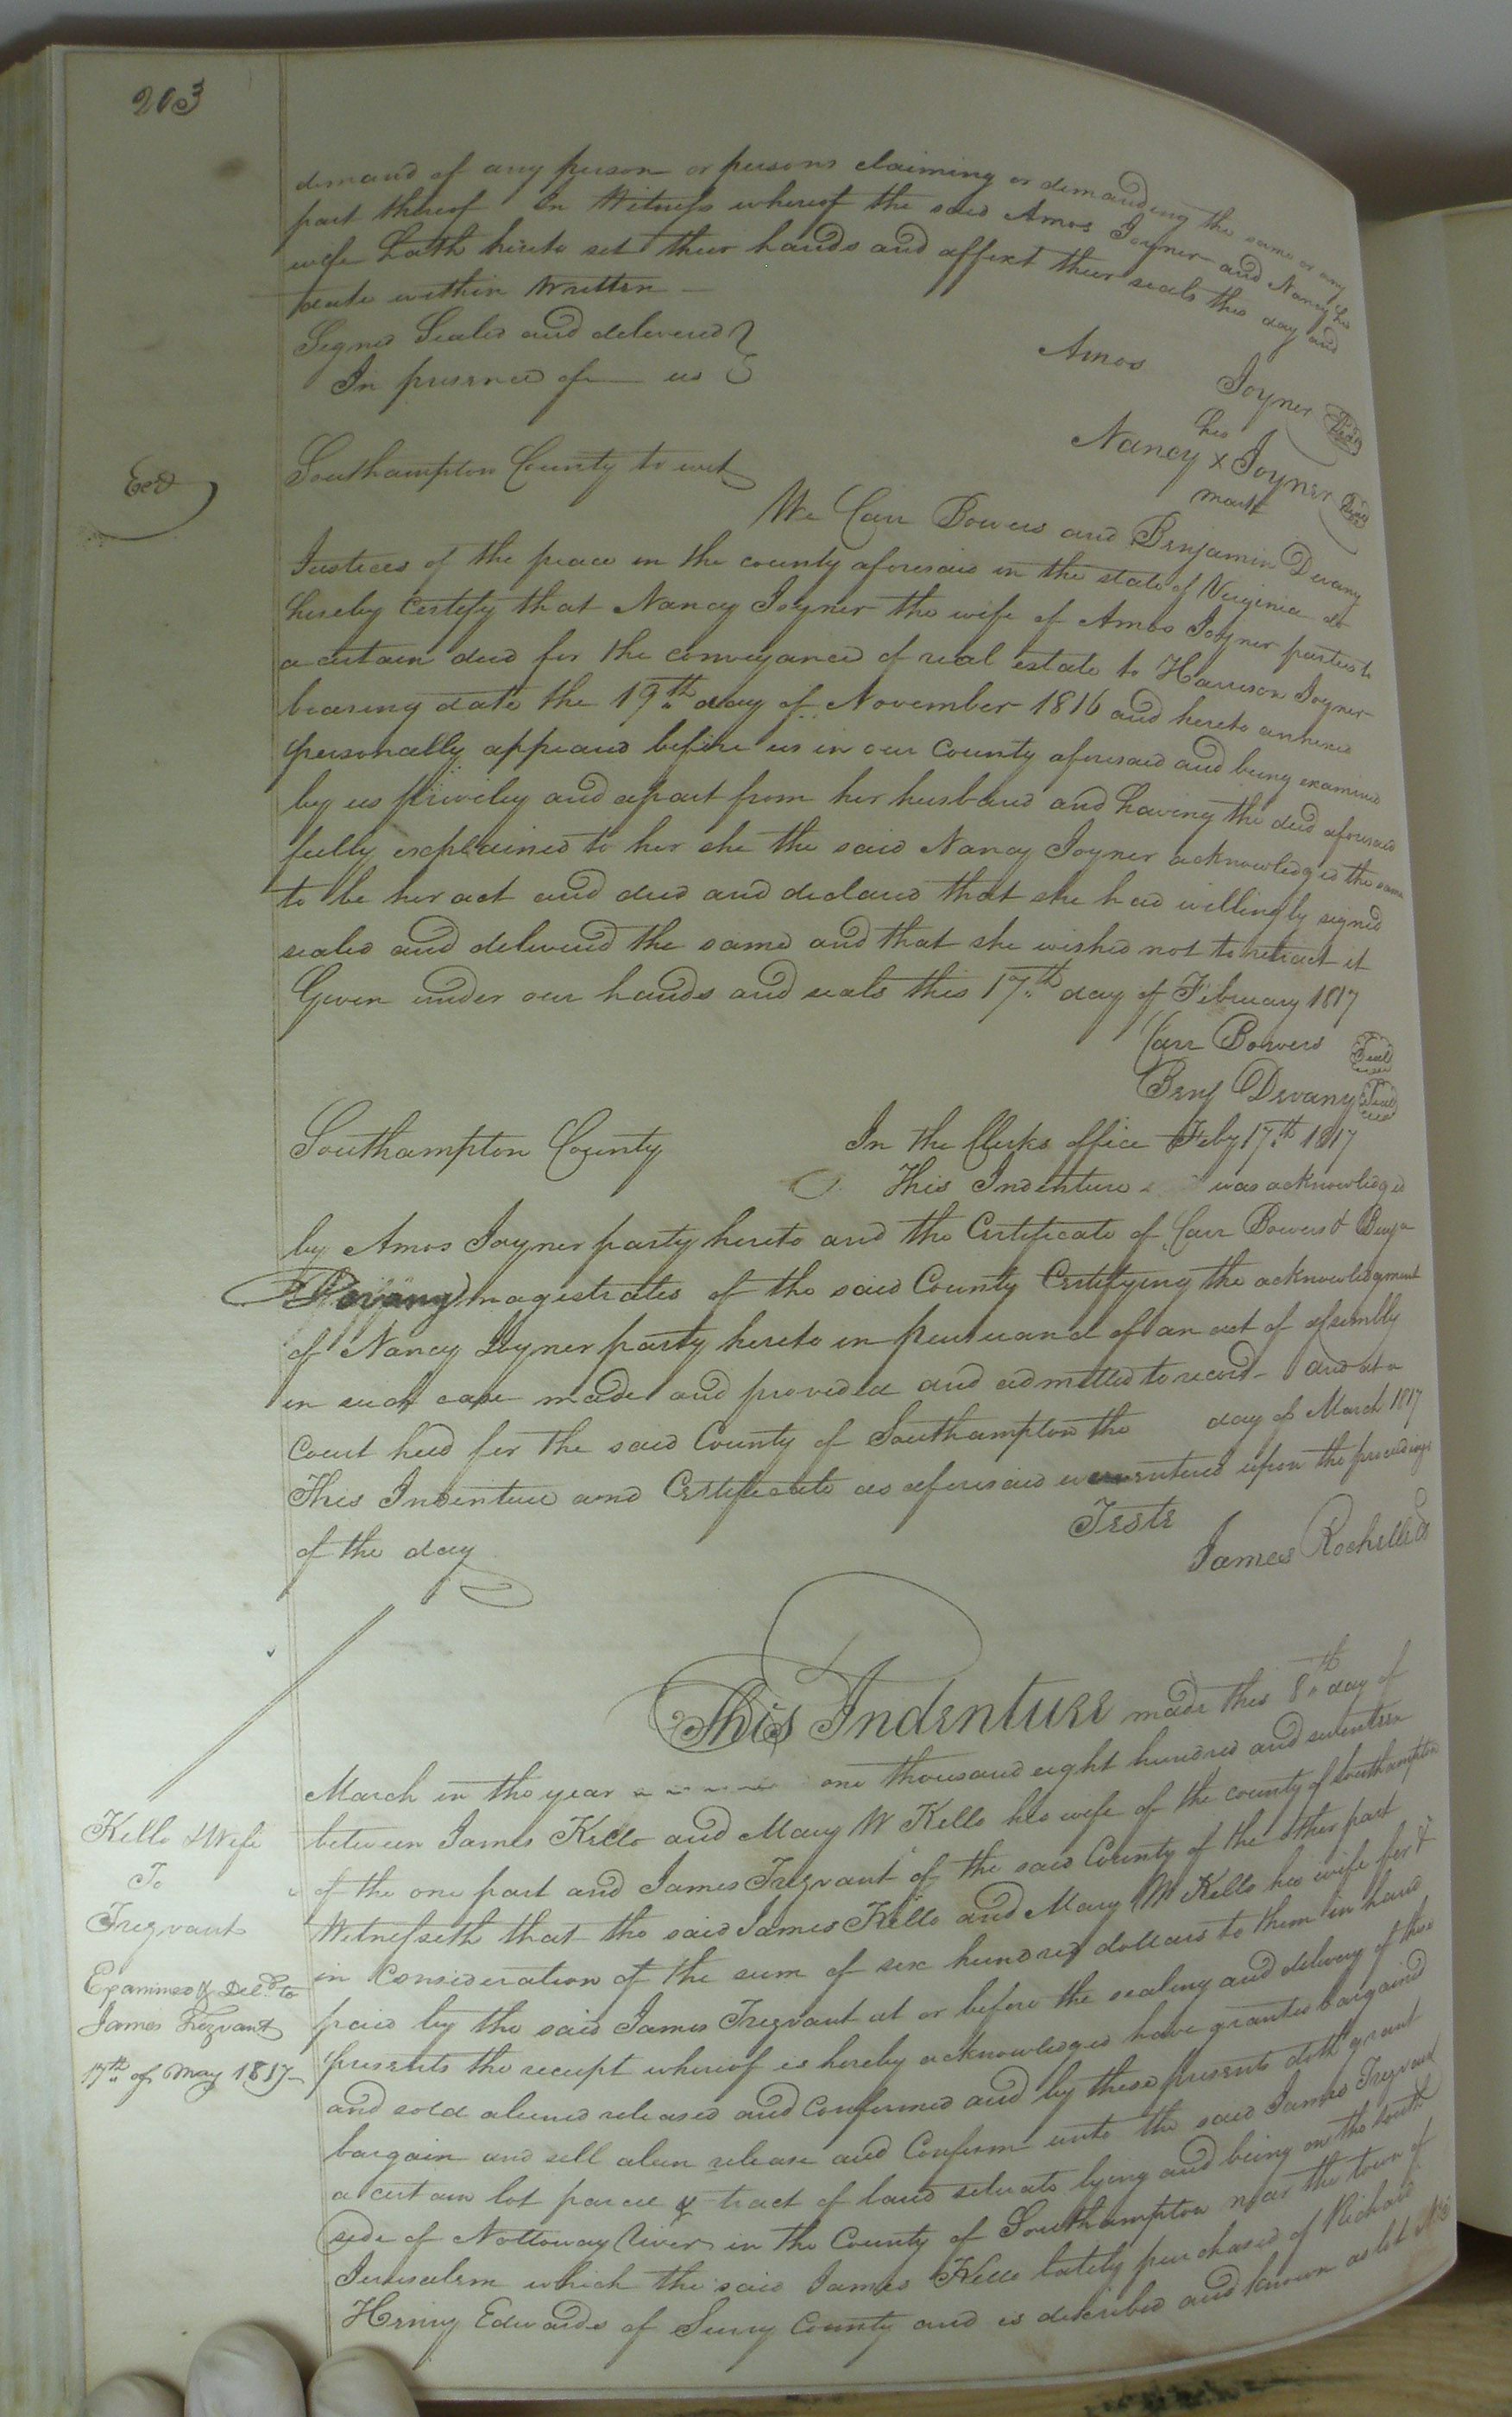 203
demand of any person or persons claiming or demanding the same or any
part thereof In Witness whereof the said Amos Joyner and Nancy his
wife hath hereto set their hands and affixt their seals this day and
date within Written
Signed Sealed and delivered
In presence of us
Amos Joyner Seal
his
Nancy x Joyner Seal
mark
Exd
Southampton County to wit
We Carr Bowers and Benjamin Devany
Justices of the peace in the county aforesaid in the state of Virginia do
hereby Certify that Nancy Joyner the wife of Amos Joyner parties to
a certain deed for the conveyance of real estate to Harrison Joyner
bearing date the 19th day of November 1816 and hereto annexed
personally appeared before us in our County aforesaid and being examined
by us privily and apart from her husband and having the deed aforesaid
fully explained to her she the said Nancy Joyner acknowledged the same
to be her act and deed and declared that she had willingly signed
sealed and delivered the same and that she wished not to retract it
Given under our hands and seals this 17th day of February 1817
Carr Bowers Seal
Benj Devany Seal
Southampton County In the Clerks office Feby 17th 1817
This Indenture was acknowledged
by Amos Joyner party hereto and the Certificate of Carr Bowers & Benja
Devany magistrates of the said County Certifying the acknowledgment
of Nancy Joyner party hereto in pursuance of an act of assembly
in such case made and provided and admitted to record - and at a
Court held for the said County of Southampton the day of March 1817
This Indenture and Certificate as aforesaid were entered upon the proceedings
of the day
Teste
James Rochelle
This Indenture made this 8th day of
March in the year one thousand eight hundred and seventeen
between James Kello and Mary W Kello his wife of the county of Southampton
of the one part and James Trezvant of the said County of the other part
Witnesseth that the said James Kello and Mary W Kello his wife for &
in Consideration of the sum of six hundred dollars to them in hand
paid by the said James Trezvant at or before the sealing and delivery of these
presents the receipt whereof is hereby acknowledged have granted bargained
and sold aliened released and Confirmed and by these presents doth grant
bargain and sell alien release and Confirm unto the said James Trezvant
a certain lot parcel & tract of land situate lying and being on the south
side of Nottoway River in the County of Southampton near the town of
Jerusalem which the said James Kello lately purchased of Richard
Henry Edwards of Surry County and is described and known as lot
Kello & Wife
To
Trezvant
Examined & Deld. to
James Trezvant
17th of May 1817